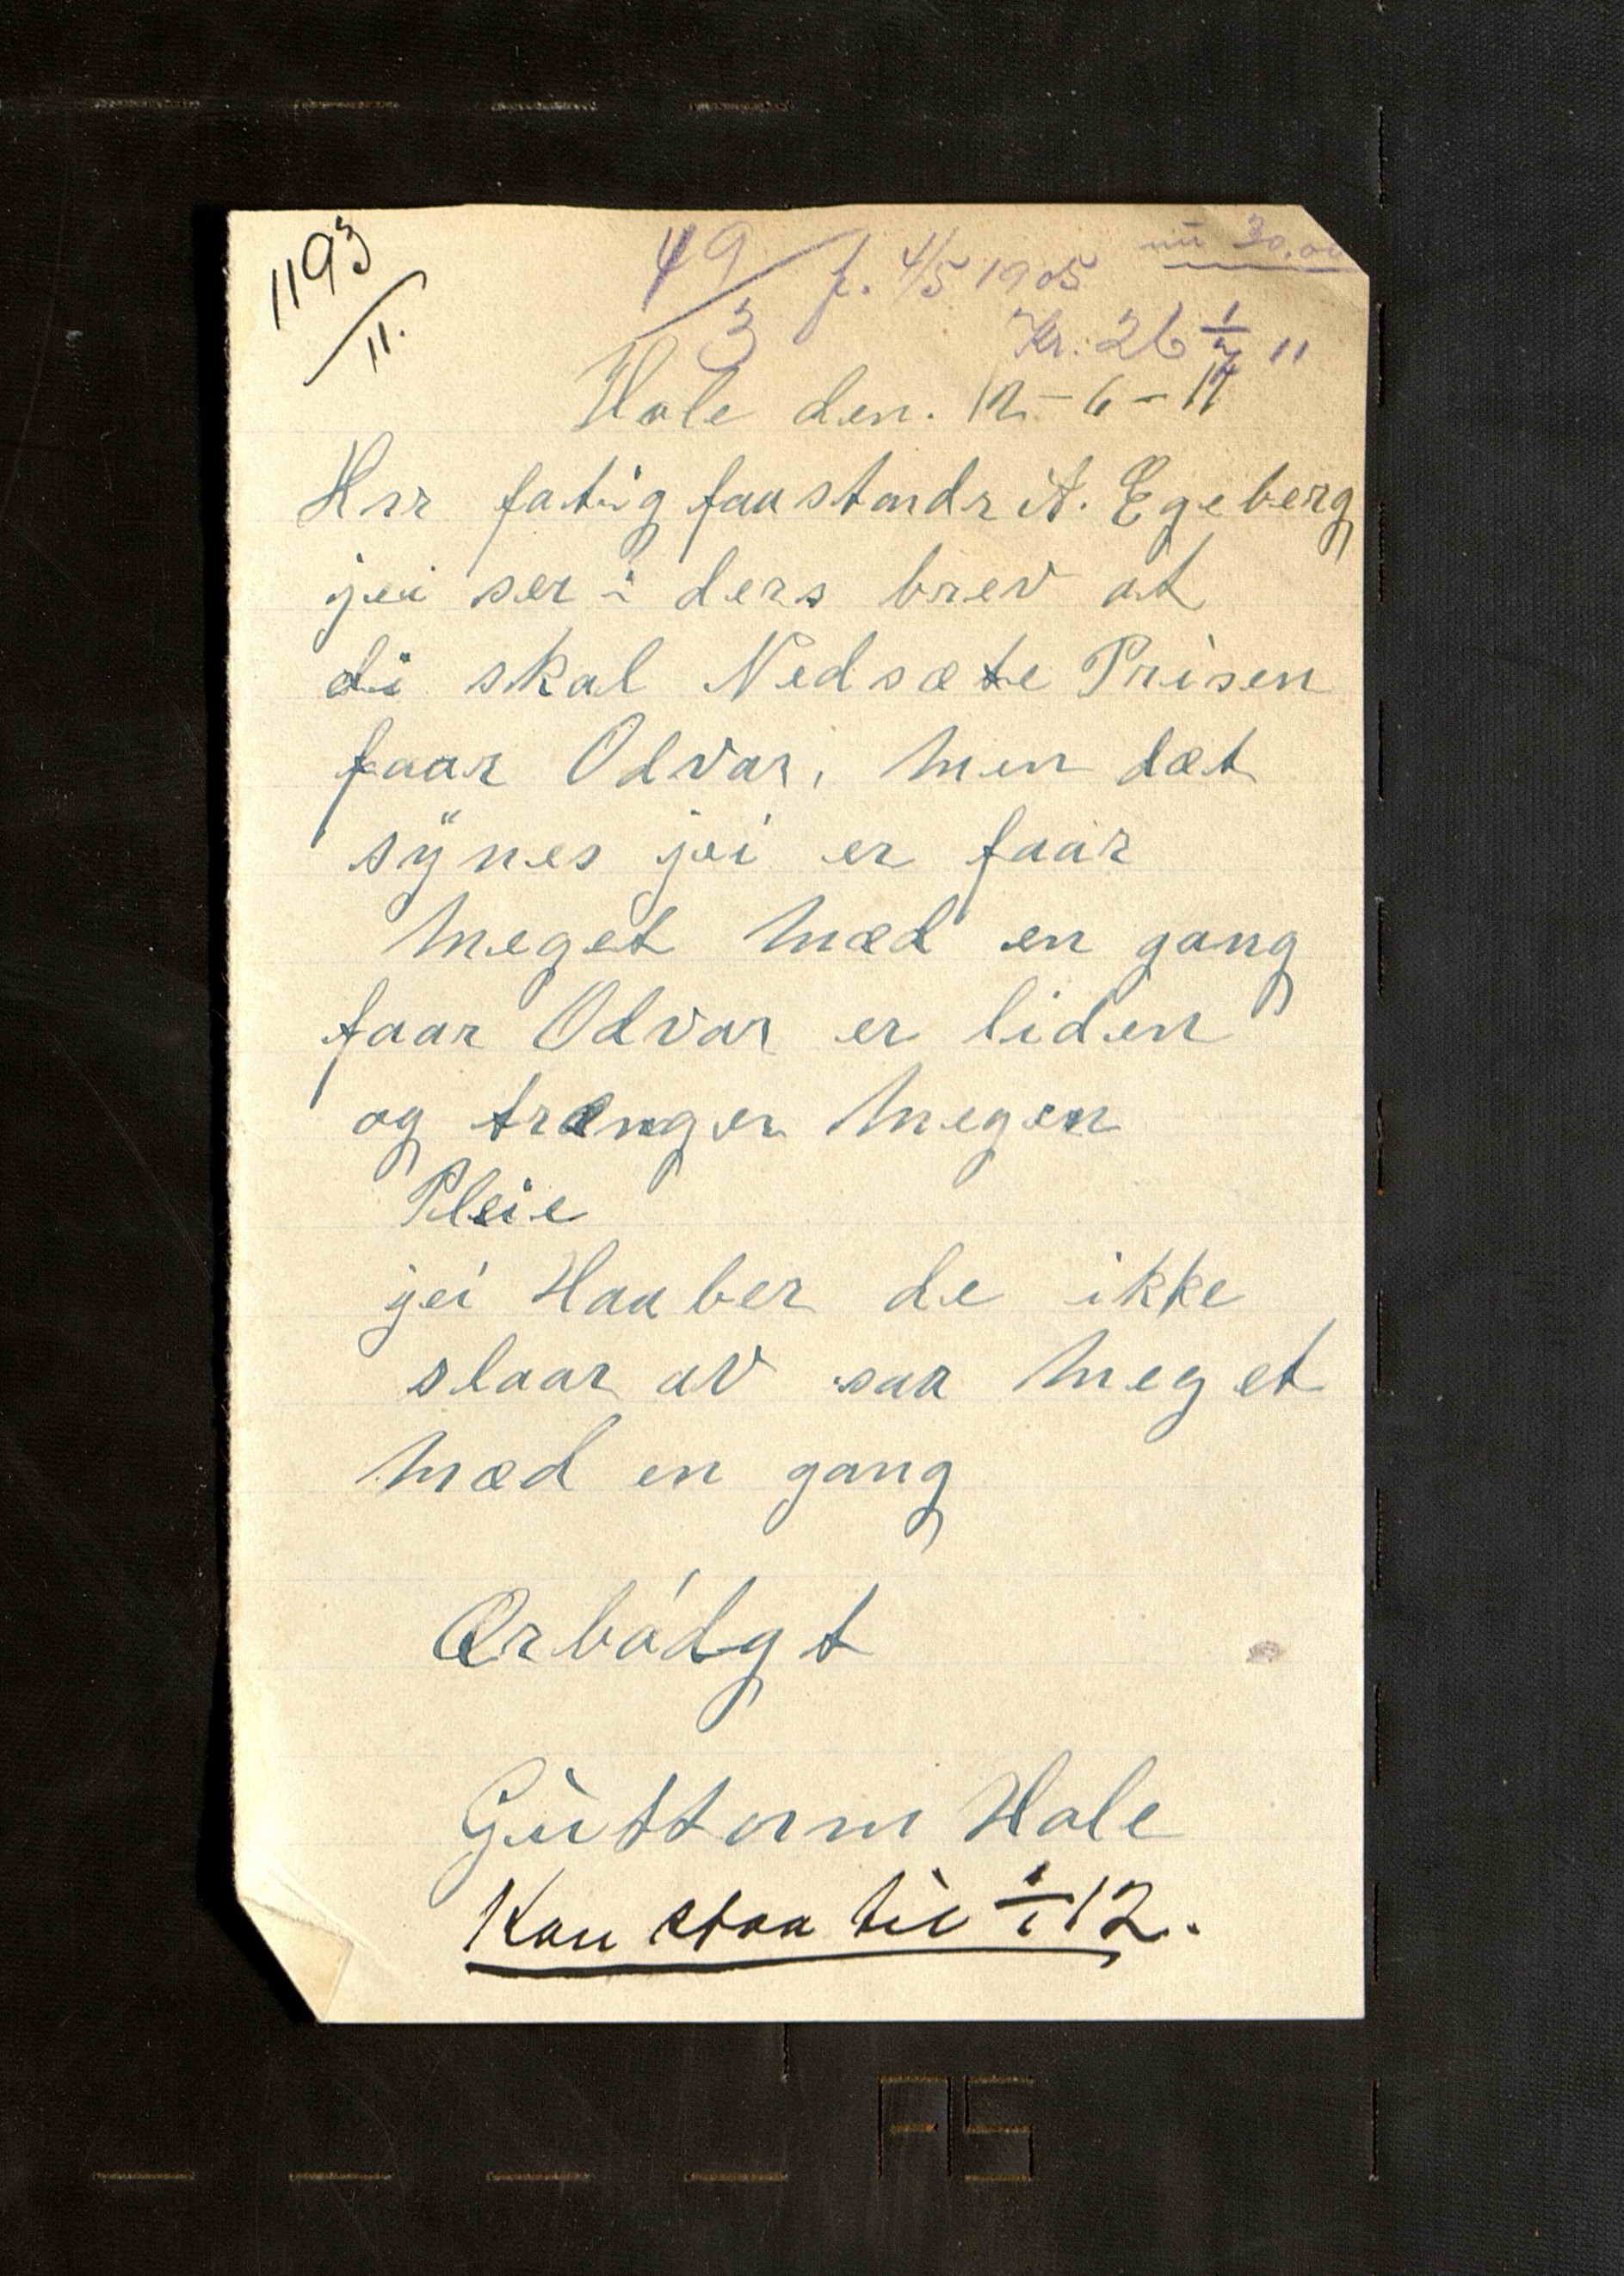 1193
11.
49
3
f. 4/5 1905
nu 30,00
Kr. 26 1/7 11
Hole den. 12-6-11
Hrr fatig faastandr A. Egeberg
jei ser i ders brev at
di skal Nedsæte Prisen
faar Odvar, men dæt
synes jei er faar
meget mæd en gang
faar Odvar er liden
og trænger megen
Pleie
jei Haaber de ikke
slaar av saa meget
mæd en gang
Ærbódgt
Guttorm Hole
Kan staa til 1/1 12.